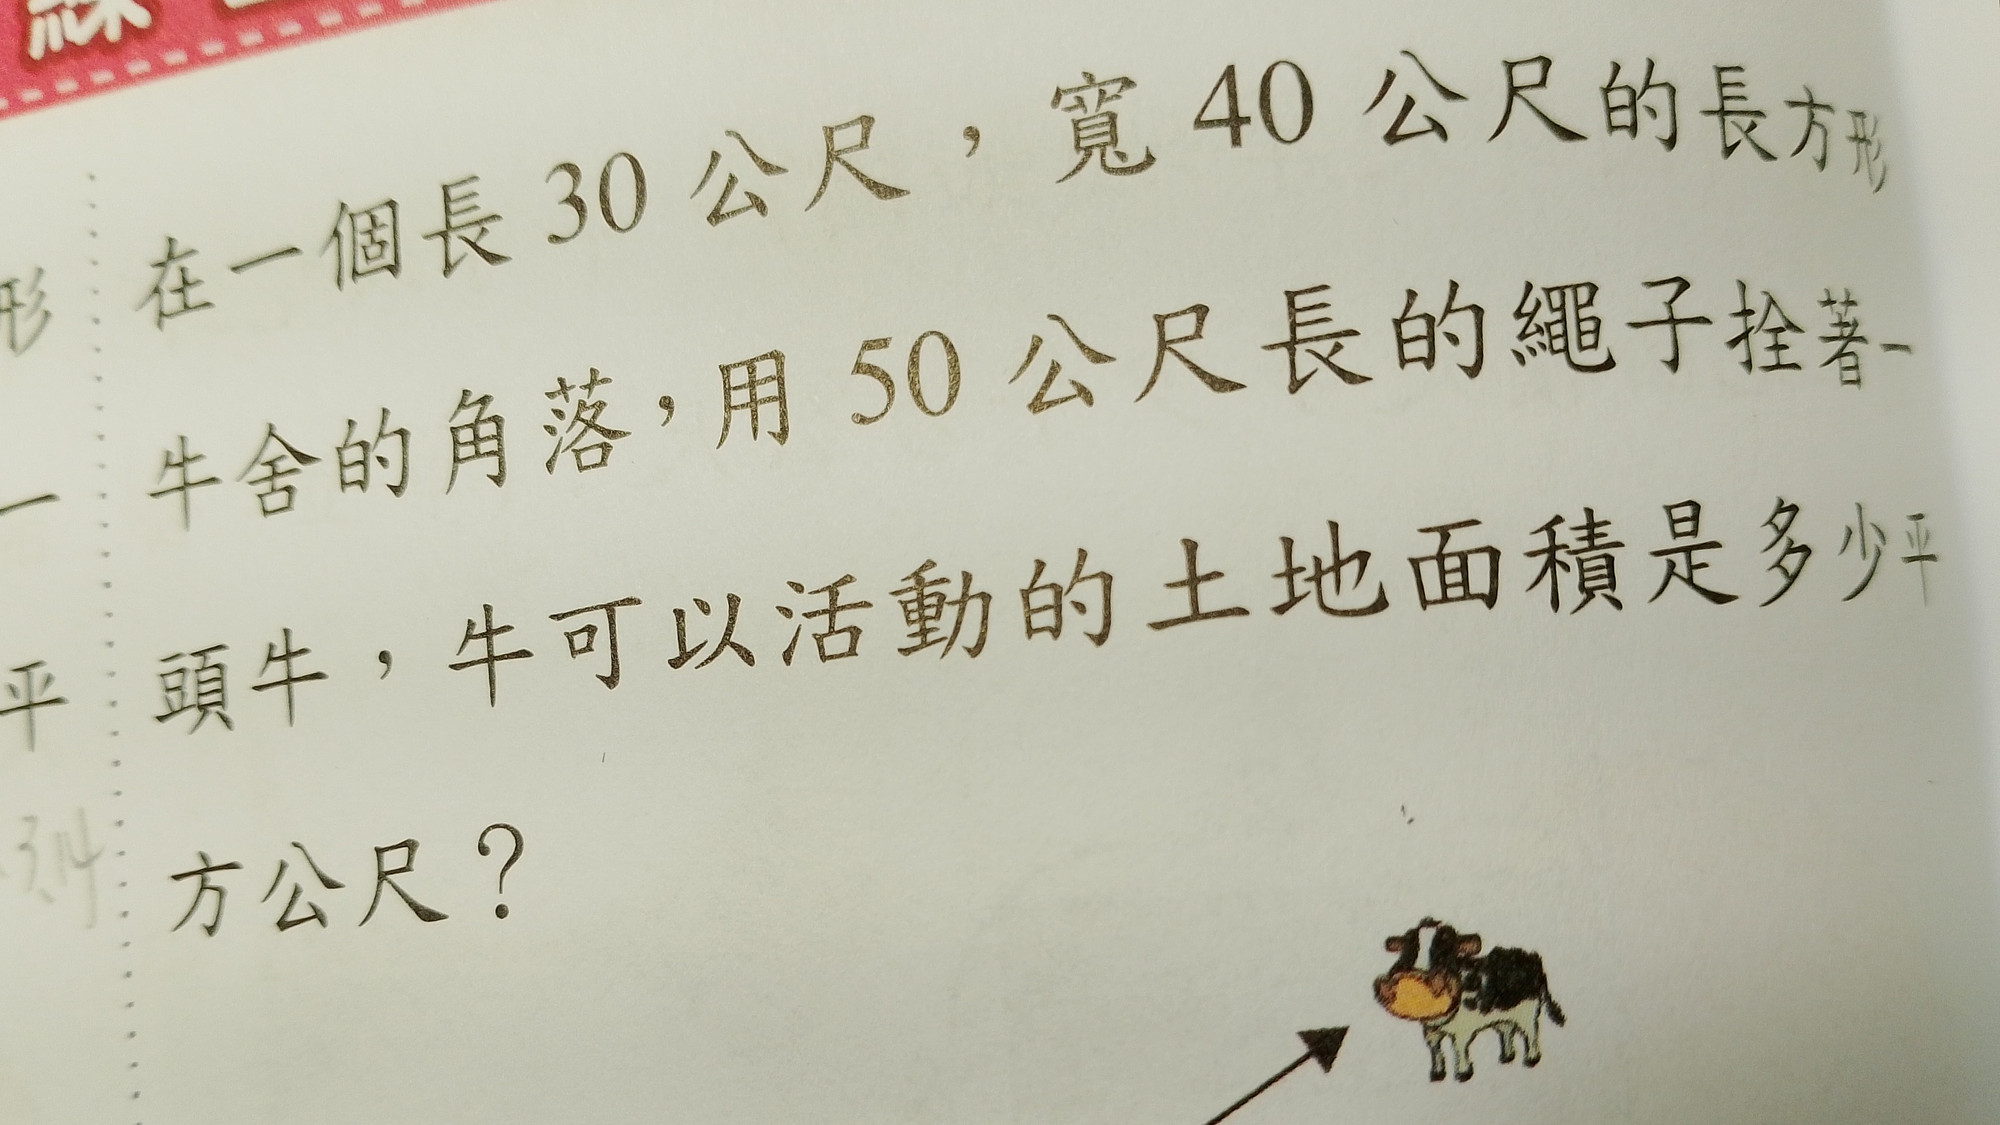 練
形
一
平
3.14
在一個長 30 公尺，寬 40 公尺的長方形
牛舍的角落，用 50 公尺長的繩子拴著一
頭牛，牛可以活動的土地面積是多少平
方公尺？